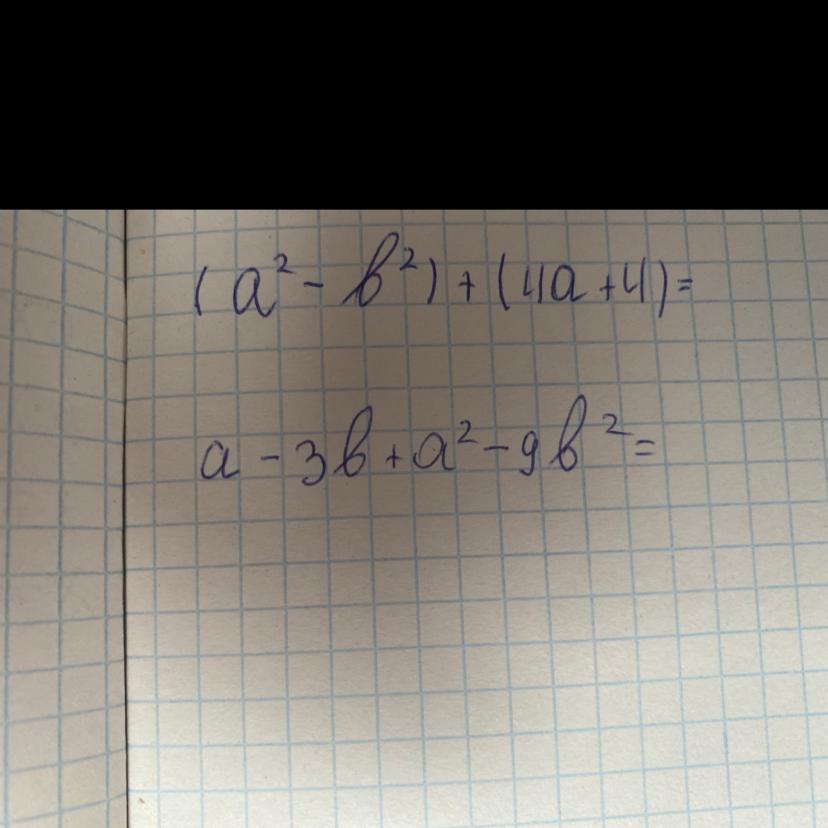 (a² - b²) + (4a + 4) =
a - 3b + a² - 9b² =